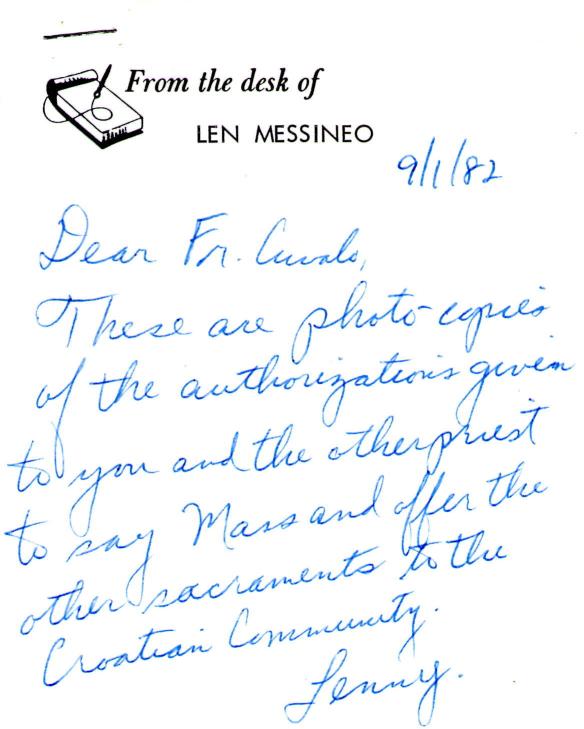 From the desk of
LEN MESSINEO
9/1/82
Dear Fr. Cuvalo,
These are photo-copies
of the authorizations given
to you and the other priest
to say Mass and offer the
other sacraments to the
Croatian Community.
Lenny.